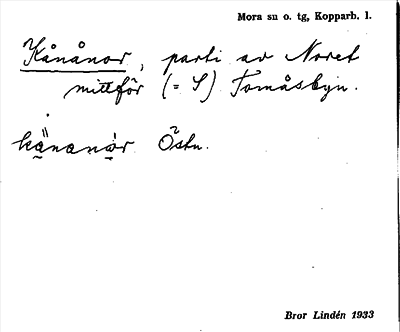 Mora sn o. tg, Kopparb. l.
Kånånor, parti av Noret
mittför (= S) Tomåsbyn.
kä̤nanȧ̱r Östn.
Bror Lindén 1933